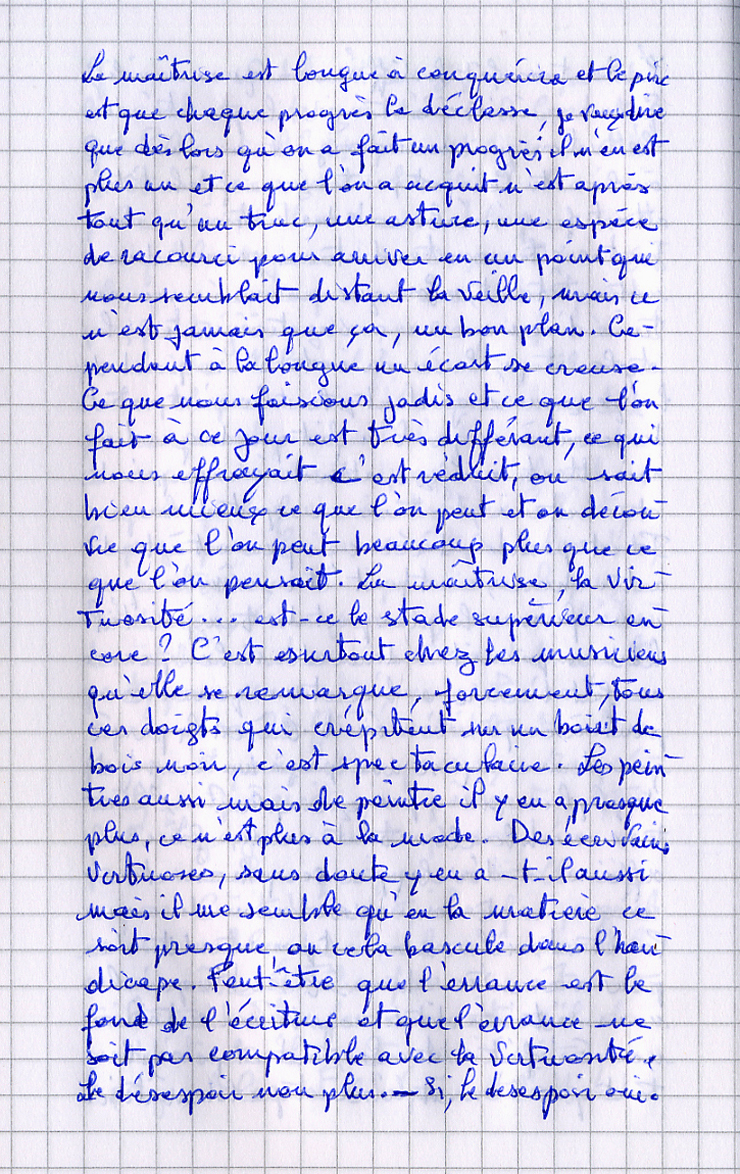 La maîtrise est longue à conquérire et le pire
est que chaque progrès le déclasse, je veux dire
que dès lors qu'on a fait un progrès il n'en est
plus un et ce que l'on a acquit n'est après
tout qu'un truc, une astuce, une espèce
de racourci pour arriver en un point qui
nous semblait distant la veille, mais ce
n'est jamais que ça, un bon plan. Ce-
pendant à la longue un écart se creuse.
Ce que nous faisions jadis et ce que l'on
fait à ce jour est très différant, ce qui
nous effrayait c'est réduit, on sait
bien mieux ce que l'on peut et on décou-
vre que l'on peut beaucoup plus que ce
que l'on pensait. La maîtrise, la vir-
tuosité... est-ce le stade supérieur en-
core ? C'est surtout chez les musiciens
qu'elle se remarque, forcement, tous
ces doigts qui crépitent sur un bout de
bois noir, c'est spectaculaire. Les pein-
tres aussi mais de peintre il y en a presque
plus, ce n'est plus à la mode. Des écrivains
virtuoses, sans doute y en a-t-il aussi
mais il me semble qu'en la matière ce
soit presque, ou cela bascule dans l'han-
dicape. Peut-être que l'errance est le
fond de l'écriture et que l'errance ne
soit pas compatible avec la virtuosité.
Le désespoir non plus. — Si, le desespoir oui.